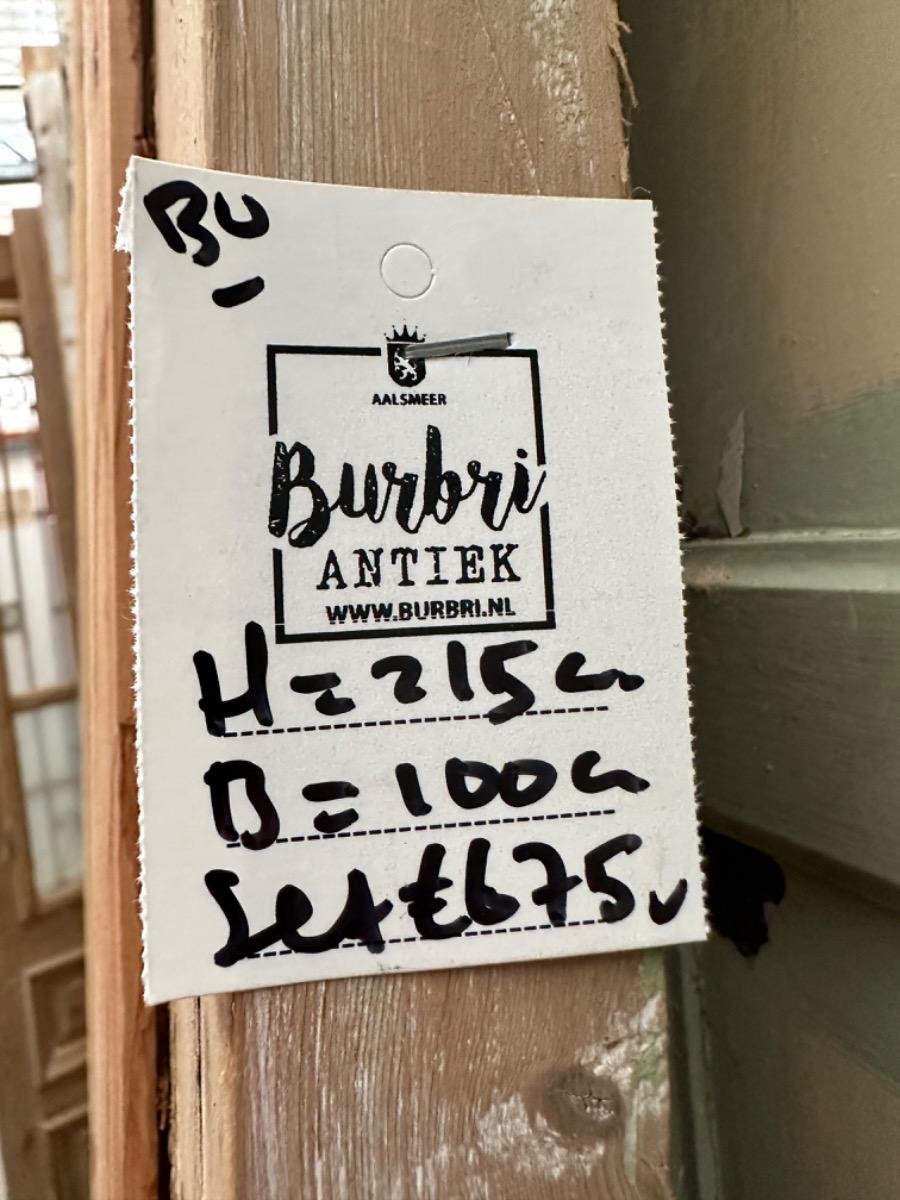 BU
-
AALSMEER
Burbri
ANTIEK
WWW.BURBRI.NL
H=215cm
B=100cm
Set €675,-